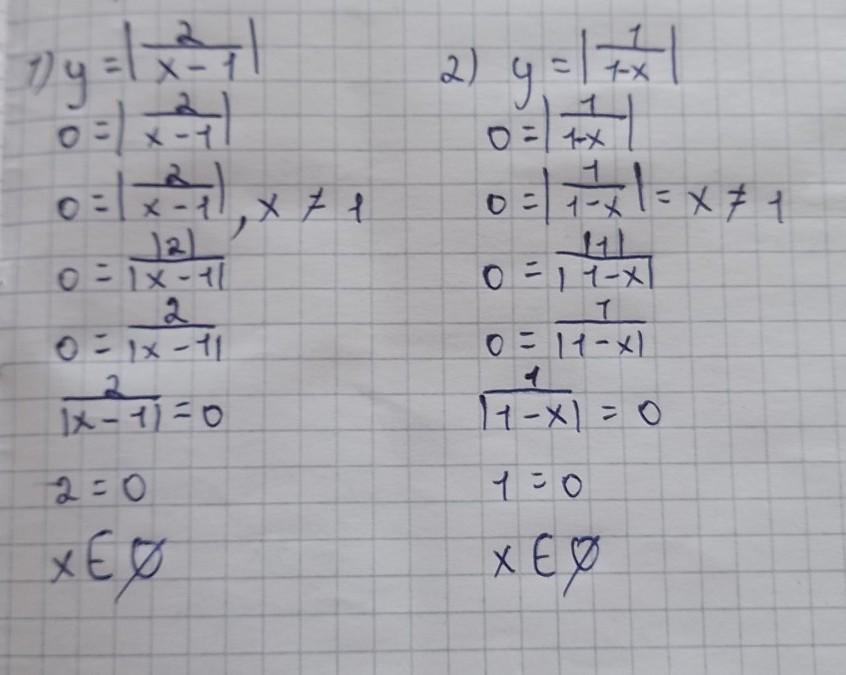 1) y = |2/(x - 1)|
0 = |2/(x - 1)|
0 = |2/(x - 1)|, x ≠ 1
0 = |2|/|x - 1|
0 = 2/|x - 1|
2/|x - 1| = 0
2 = 0
x ∈ ∅
2) y = |1/(1-x)|
0 = |1/(1-x)|
0 = |1/(1-x)| = x ≠ 1
0 = |1|/|1-x|
0 = 1/|1-x|
1/|1-x| = 0
1 = 0
x ∈ ∅